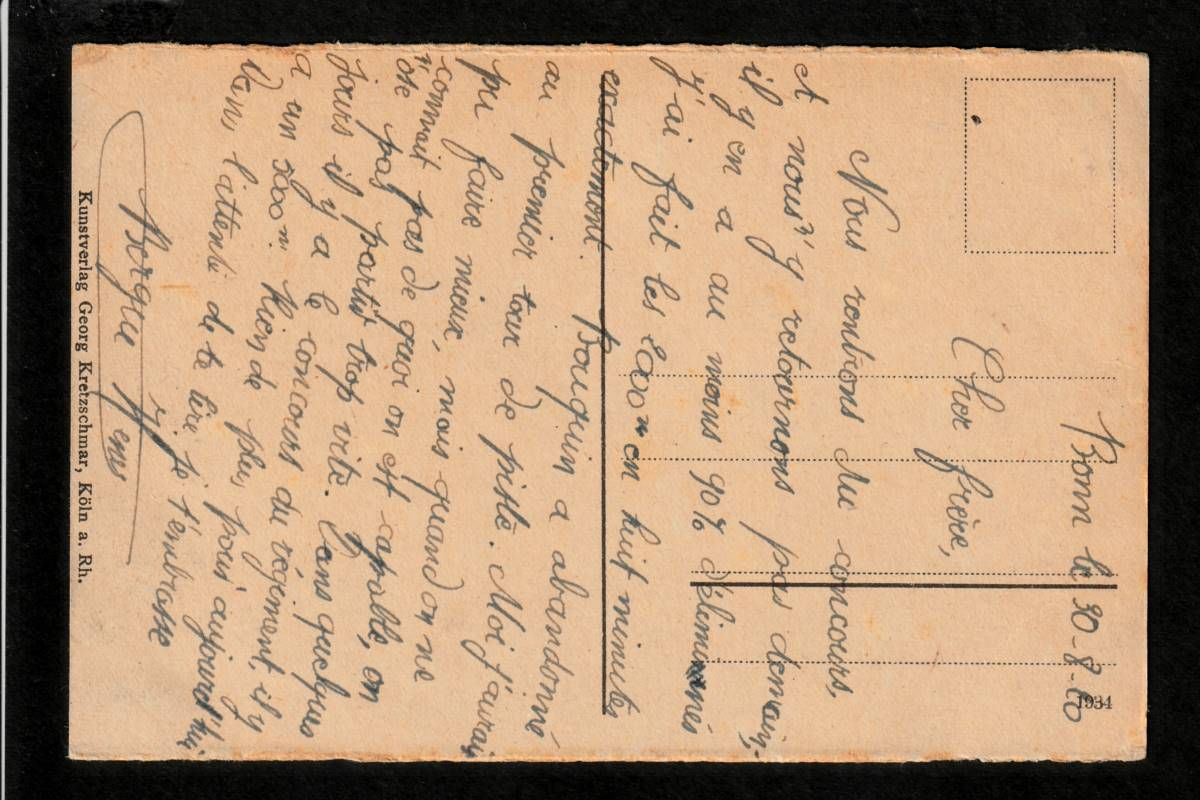 Bonn le 30-8-20
Cher frère,
Nous rentrons du concours,
et nous n'y retournons pas demain,
il y en a au moins 90% d'éliminés
J'ai fait les 2000m en huit minutes
exactement. Bouquin a abandonné
au premier tour de piste. Moi j'aurais
pu faire mieux, mais quand on ne
connait pas de quoi on est capable, on
n'ose pas partir trop vite. Dans quelques
jours il y a le concours du régiment, il y
a un 5000m. Rien de plus pour aujourd'hui
Dans l'attente de te lire je t'embrasse
1934
Kunstverlag Georg Kretzschmar, Köln a. Rh.